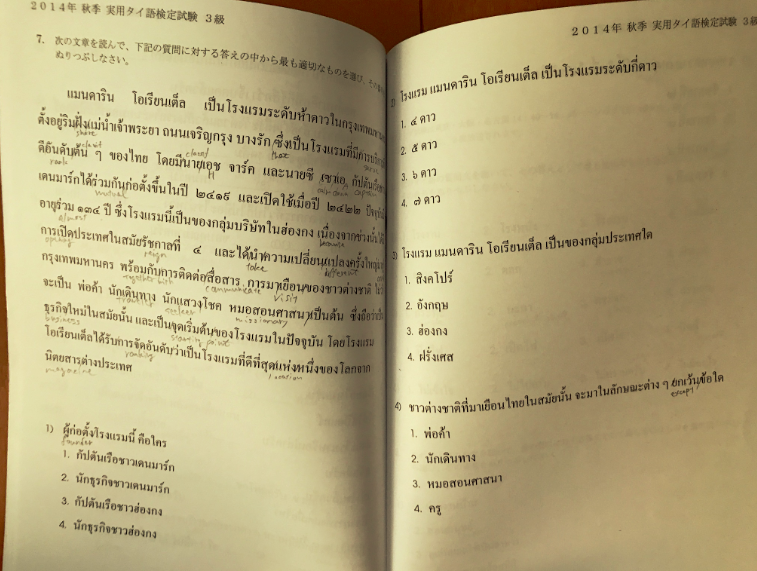 2014年 秋季 実用タイ語検定試験 3級
7. 次の文章を読んで、下記の質問に対する答えの中から最も適切なものを選び、その
ぬりつぶしなさい。
แมนดาริน โอเรียนเต็ล เป็นโรงแรมระดับห้าดาวในกรุงเทพมหานคร
ตั้งอยู่ริมฝั่งแม่น้ำเจ้าพระยา ถนนเจริญกรุง บางรัก ซึ่งเป็นโรงแรมที่มีการบริการ
shore that serve
ดีอันดับต้น ๆ ของไทย โดยมีนายเอช จาร์ค และนายซี กัปตันเรือชาว
rank captain
เดนมาร์กได้ร่วมกันก่อตั้งขึ้นในปี ๒๔๑๙ และเปิดใช้เมื่อปี ๒๔๒๒ ปัจจุบัน
mutual
อายุร่วม ๑๓๔ ปี ซึ่งโรงแรมนี้เป็นของกลุ่มบริษัทในฮ่องกง เนื่องจากช่วงนั้นได้
almost because
การเปิดประเทศในสมัยรัชกาลที่ ๔ และได้นำความเปลี่ยนแปลงครั้งใหญ่
opening reign take different
กรุงเทพมหานคร พร้อมกับการติดต่อสื่อสาร การมาเยือนของชาวต่างชาติ
together with communicate visit
จะเป็น พ่อค้า นักเดินทาง นักแสวงโชค หมอสอนศาสนาเป็นต้น ซึ่งถือว่าเป็น
traveller seeker missionary
ธุรกิจใหม่ในสมัยนั้น และเป็นจุดเริ่มต้นของโรงแรมในปัจจุบัน โดยโรงแรม
business starting point
โอเรียนเต็ลได้รับการจัดอันดับว่าเป็นโรงแรมที่ดีที่สุดแห่งหนึ่งของโลกจาก
ranking location
นิตยสารต่างประเทศ
magazine
1) ผู้ก่อตั้งโรงแรมนี้ คือใคร
founder
1. กัปตันเรือชาวเดนมาร์ก
2. นักธุรกิจชาวเดนมาร์ก
3. กัปตันเรือชาวฮ่องกง
4. นักธุรกิจชาวฮ่องกง
2014年 秋季 実用タイ語検定試験 3級
2) โรงแรม แมนดาริน โอเรียนเต็ล เป็นโรงแรมระดับกี่ดาว
1. ๔ ดาว
2. ๕ ดาว
3. ๖ ดาว
4. ๗ ดาว
3) โรงแรม แมนดาริน โอเรียนเต็ล เป็นของกลุ่มประเทศใด
1. สิงคโปร์
2. อังกฤษ
3. ฮ่องกง
4. ฝรั่งเศส
4) ชาวต่างชาติที่มาเยือนไทยในสมัยนั้น จะมาในลักษณะต่าง ๆ ยกเว้นข้อใด
except
1. พ่อค้า
2. นักเดินทาง
3. หมอสอนศาสนา
4. ครู